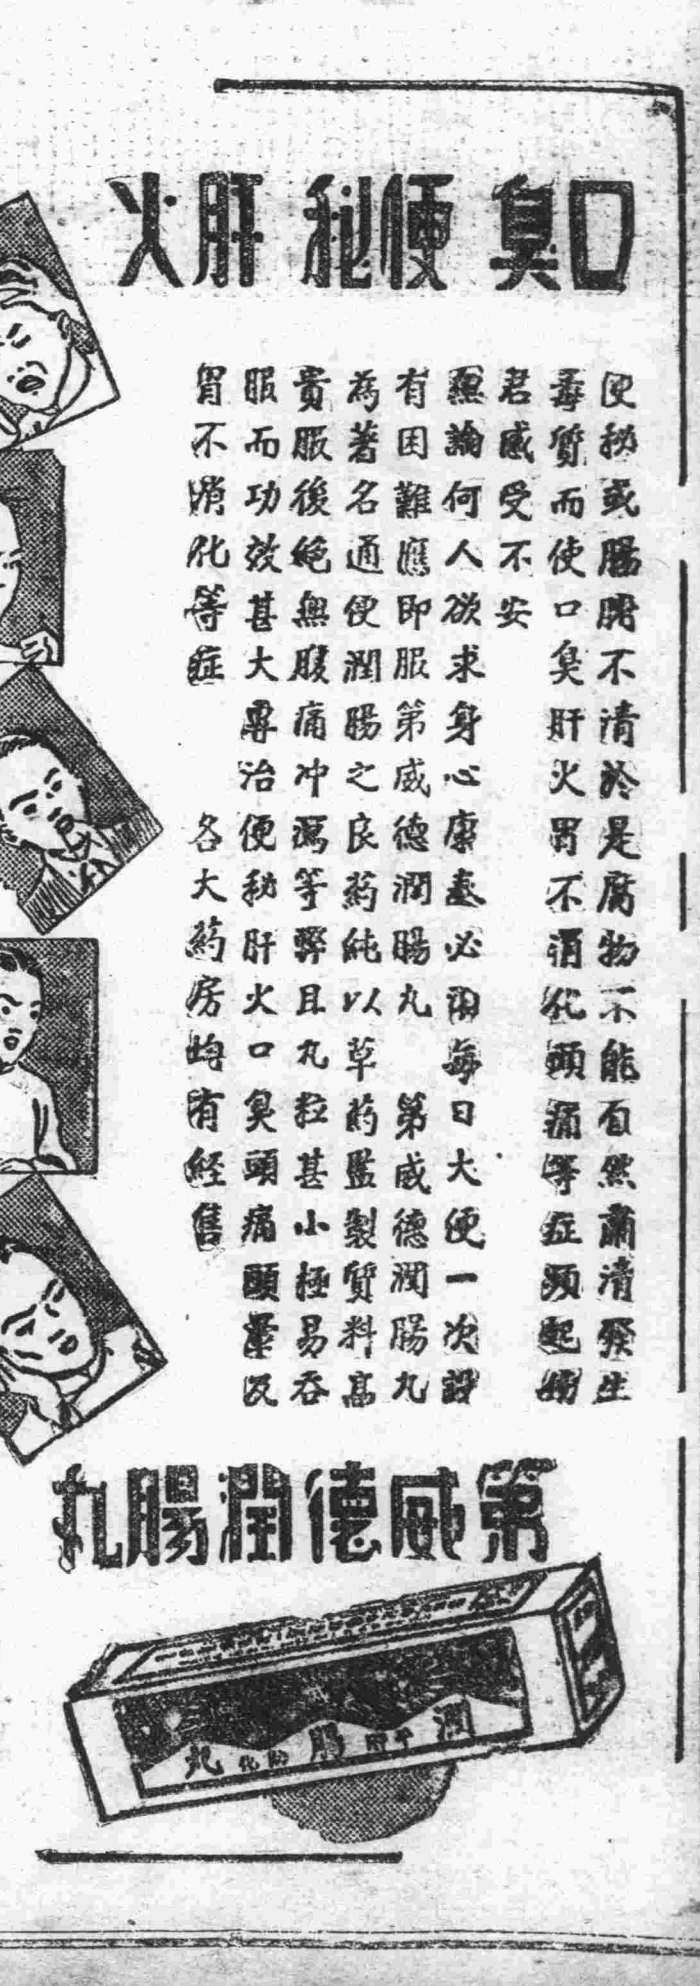 口臭 便秘 肝火
便秘或腸臓不清於是腐物不能自然肅清發生
毒質而使口臭肝火胃不消化頭痛等症頻起揦
君感受不安
無論何人欲求身心康泰必須每日大便一次設
有困難應即服第威德潤腸丸 第威德潤腸九
為著名通便潤腸之良葯純以草葯監製質料高
貴服後絕無腹痛冲瀉等弊且丸粒甚小極易吞
服而功效甚大專治便秘肝火口臭頭痛頭暈及
胃不消化等症 各大葯房均有經售
第威德潤腸丸
潤 腸 丸